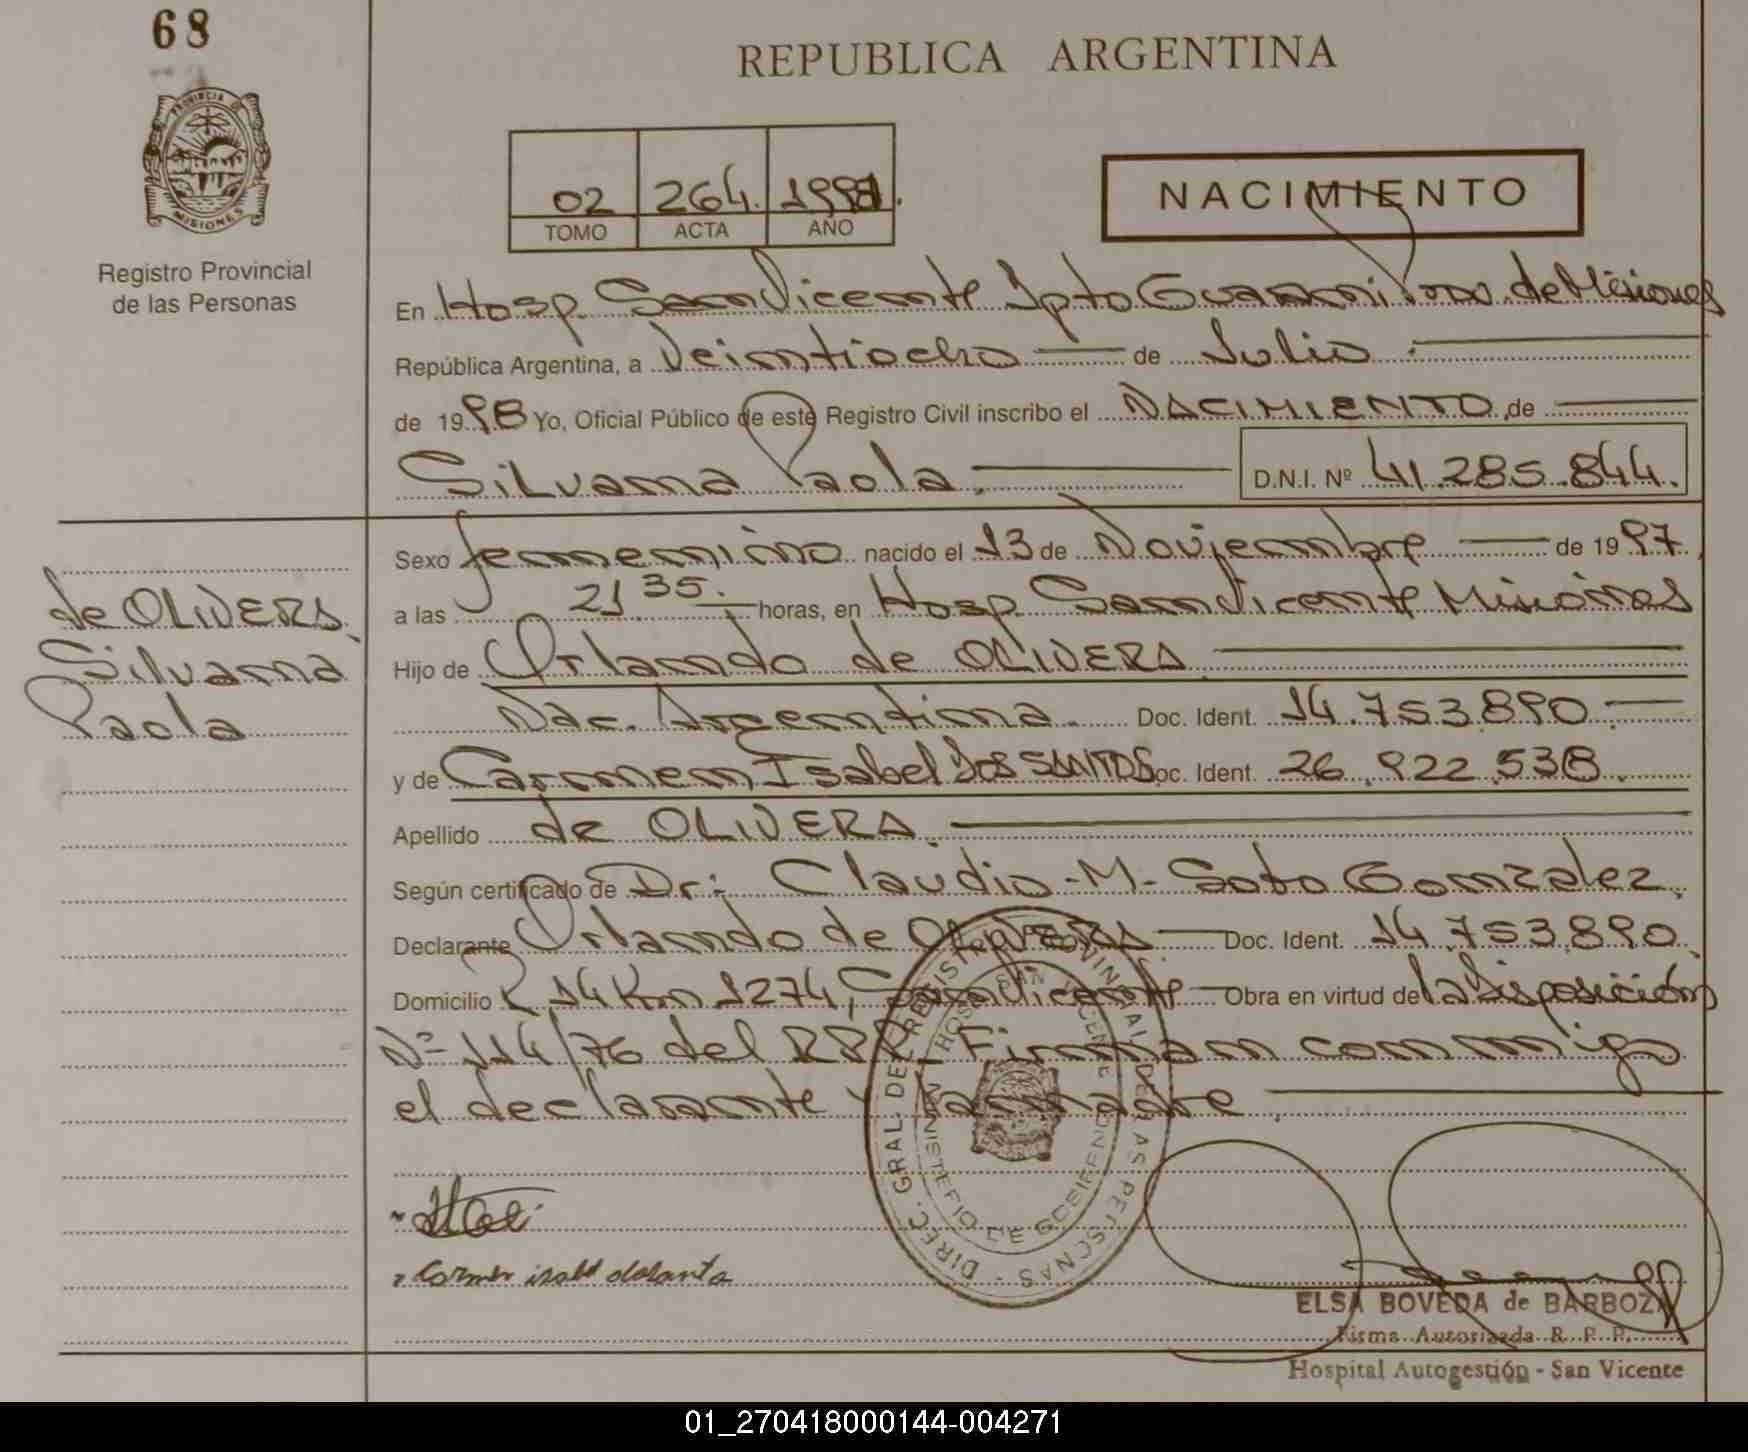 68
REPUBLICA ARGENTINA
PROVINCIA DE
MISIONES
Registro Provincial
de las Personas
02 264. 199
TOMO ACTA AÑO
NACIMIENTO
En Hosp. San Vicente Dpto Guaraní Prov. de Misiones
República Argentina, a Veintiocho de Julio.
de 1998 Yo, Oficial Público de este Registro Civil inscribo el NACIMIENTO de
Silvana Paola. D.N.I. Nº 41.285.844.
Sexo femenino nacido el 13 de Noviembre de 1997
a las 21 35. horas, en Hosp. San Vicente Misiones
Hijo de Orlando de OLIVERA
Nac. Argentina. Doc. Ident. 14.753.890.
y de Carmen Isabel DOS SANTOS Doc. Ident. 26.922.538.
Apellido de OLIVERA
Según certificado de Dr: Claudio-M-Soto Gonzalez.
Declarante Orlando de OLIVERA Doc. Ident. 14.753.890.
Domicilio R 14 Km 1274, San Vicente Obra en virtud de la Disposición
Nº 114/76 del RPP. Firman conmigo
el declarante y la madre.
de OLIVERA
Silvana
Paola
DIREC. GRAL. DEL REGISTRO PROVINCIAL DE LAS PERSONAS
HOSP. SAN VICENTE
MINISTERIO DE GOBIERNO
ELSA BOVEDA de BARBOZA
Firma Autorizada R. P. P.
Hospital Autogestión - San Vicente
01_270418000144-004271